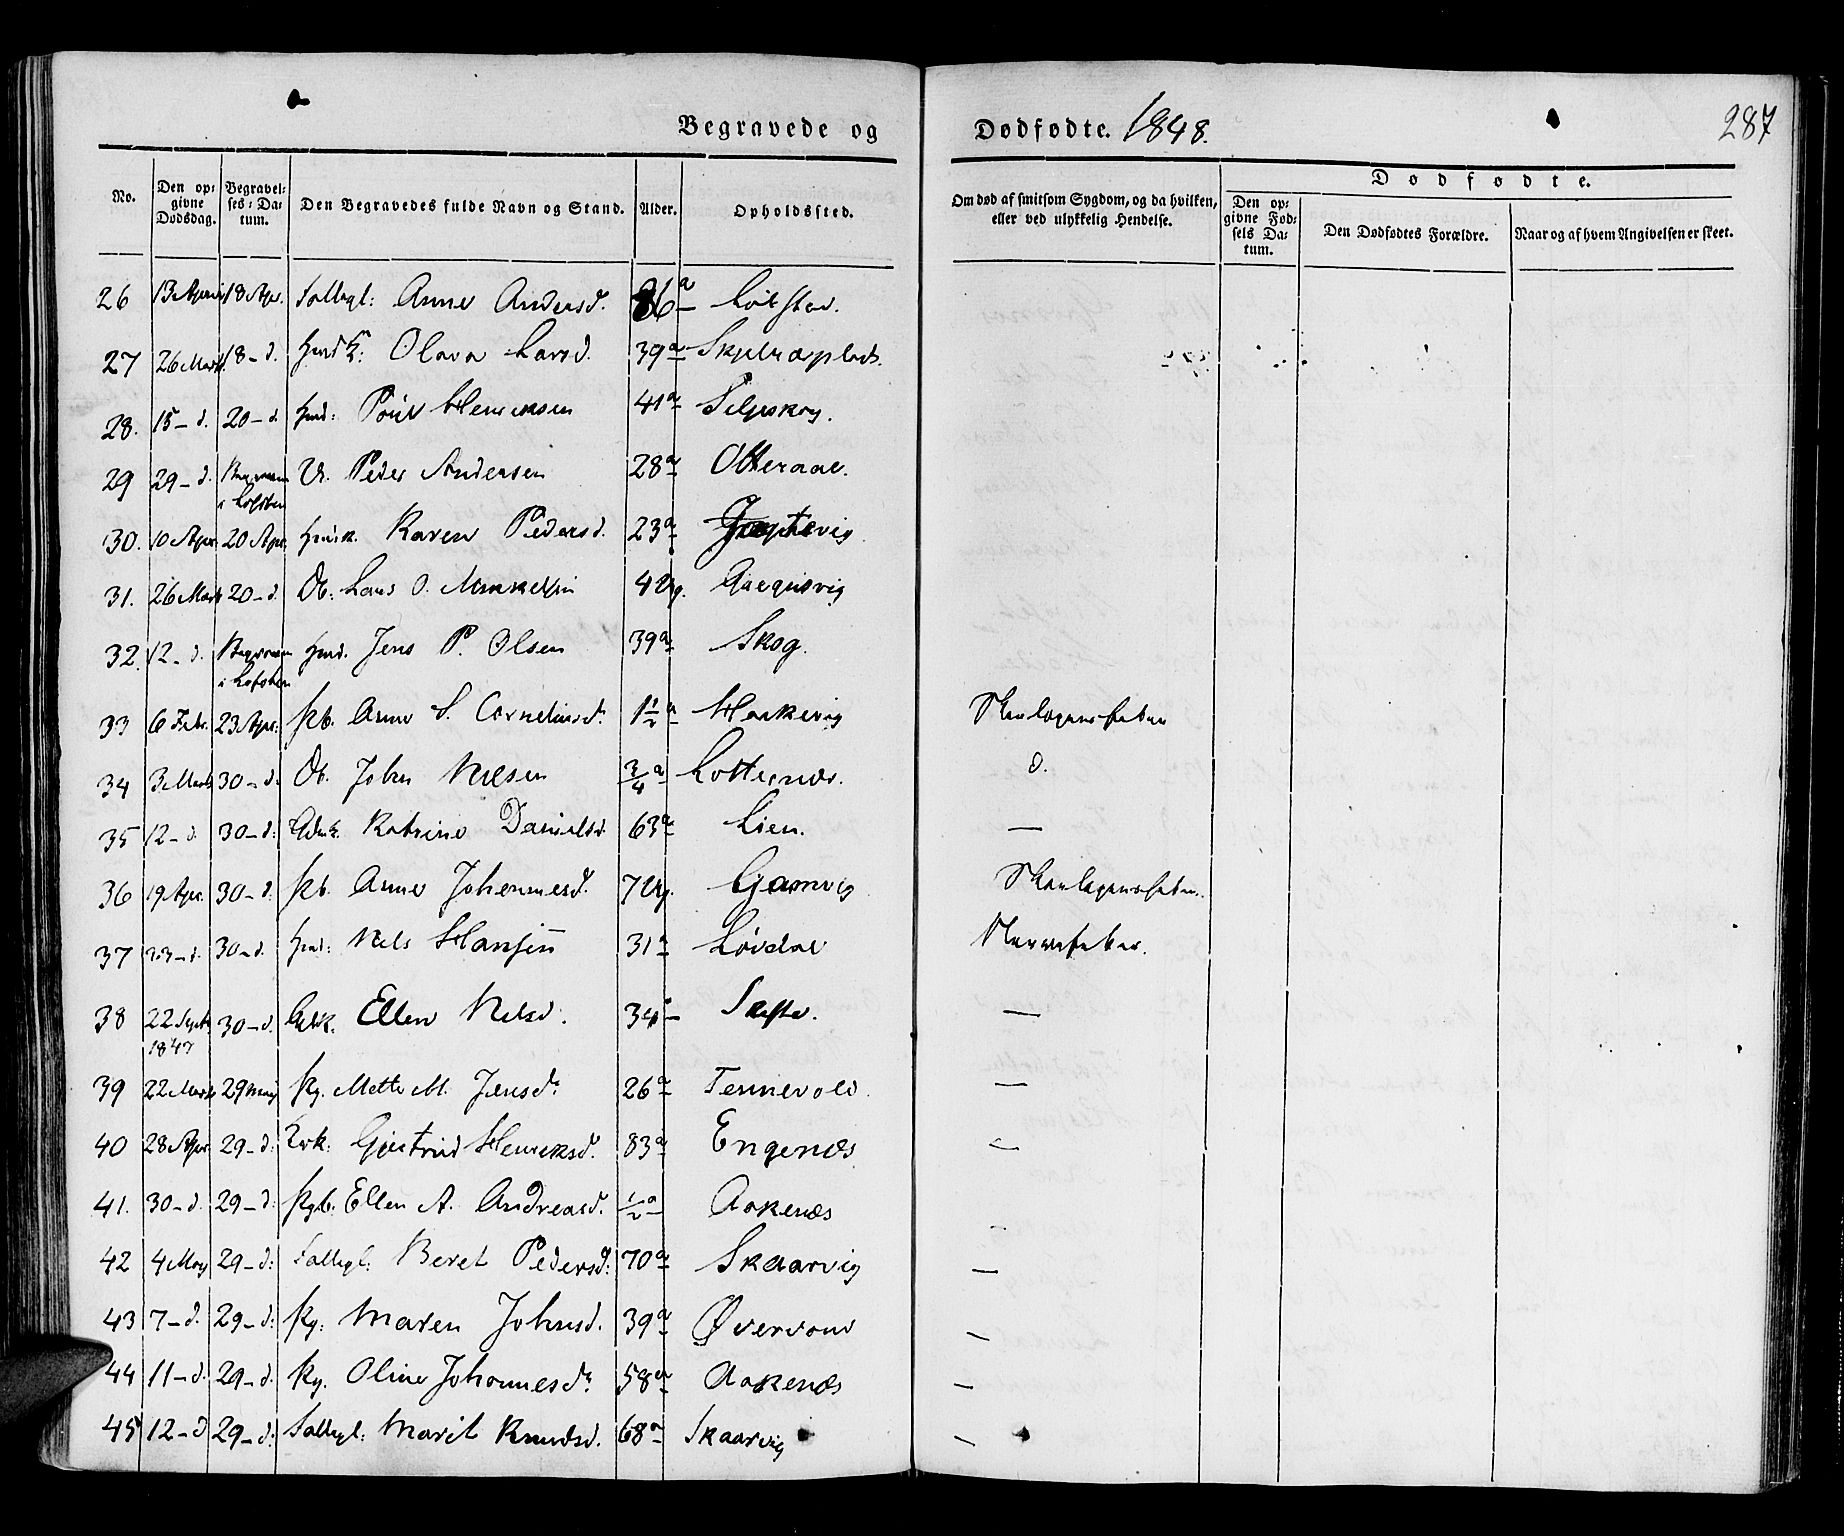 Begravede og Dødfødte. 1848. 287
No. Den opgivne Dødsdag. Begravelses-Datum. Den Begravedes fulde Navn og Stand. Alder. Opholdssted. Om død af smitsom Sygdom, og da hvilken, eller ved ulykkelig Hendelse. Dødfødte. Den opgivne Fødsels Datum. Den Dødfødtes Forældre. Naar og af hvem Angivelsen er skeet.
26 13 April 18 Apr. Follegl: Anne Andersd. 86 a
27 26 Marts 18 - d. Olava Larsd. 39 a
28. 15 - d. 20 - d. Hmd: Poul Henriksen 41 a
29 29 - d. Begraven i Lofoten U. Peder Andersen 28 a Otteraae.
30. 10 Apr. 20 Apr. Karen Pedersd. 23 a
31. 26 Marts 20 - d. Db: Lars O. Mikkelsen 4 Ug.
32. 12 - d. Begraven i Lofoten Hmd. Jens P. Olsen 39 a Skog.
33 6 Febr. 23 Apr. Pb. Anne S. Corneliusd. 1½ a Skarlagensfeber
34 3 Marts 30 - d. Db. John Nilsen ¾ a d.
35 12 - d. 30 - d: Katrine Danielsd. 63 a Lien. —
36 19 Apr. 30 - d: Pb. Anne Johannesd. 7 Ug. Gamvig Skarlagensfeber.
37 23 - d. 30 - d. Hmd: Nils Hansen 31 a Løvdal Nervefeber.
38 22 Septr. 1847 30 - d. Ellen Nilsd. 34 a —
39 22 Marts 29 May Pg. Mette M. Jensd. 26 a Tennevold. —
40 28 Apr. 29 - d: Gjertrud Henriksd. 83 a Engenæs —
41. 30 - d. 29 - d: Pgb: Ellen A. Andreasd. ½ a Aakenæs
42 4 May 29 - d: Follegl: Beret Pedersd: 70 a Skaarvig —
43 7 - d. 29 - d: Pg: Maren Johnsd. 39 a —
44 11 - d. 29 - d. Pg. Oline Johannesd. 58 a Aakenæs —
45 12 - d 29 - d: Follegl: Marit Knudsd. 68 a Skaarvig —